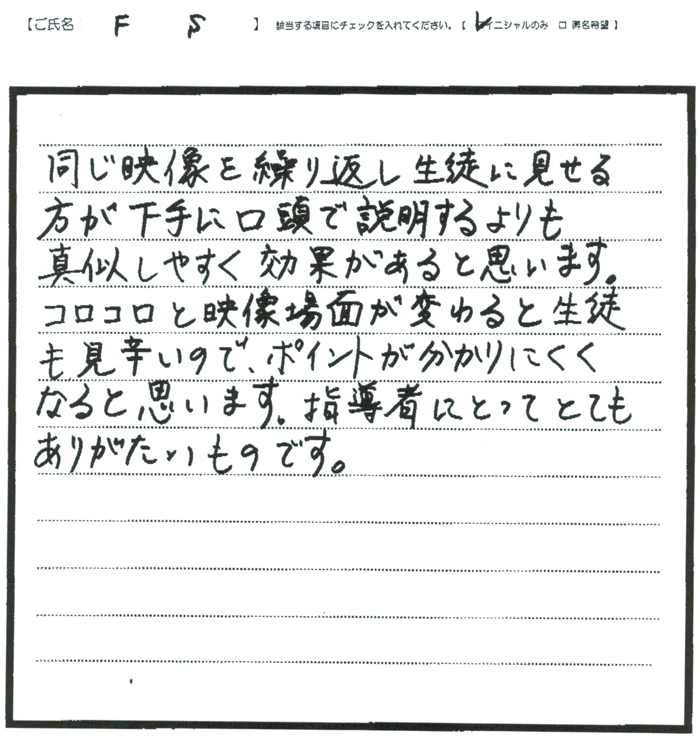 【ご氏名 F S 】 該当する項目にチェックを入れてください。【 ☑ イニシャルのみ ロ 匿名希望 】
同じ映像を繰り返し生徒に見せる
方が下手に口頭で説明するよりも
真似しやすく効果があると思います。
コロコロと映像場面が変わると生徒
も見辛いので、ポイントが分かりにくく
なると思います。指導者にとってとても
ありがたいものです。